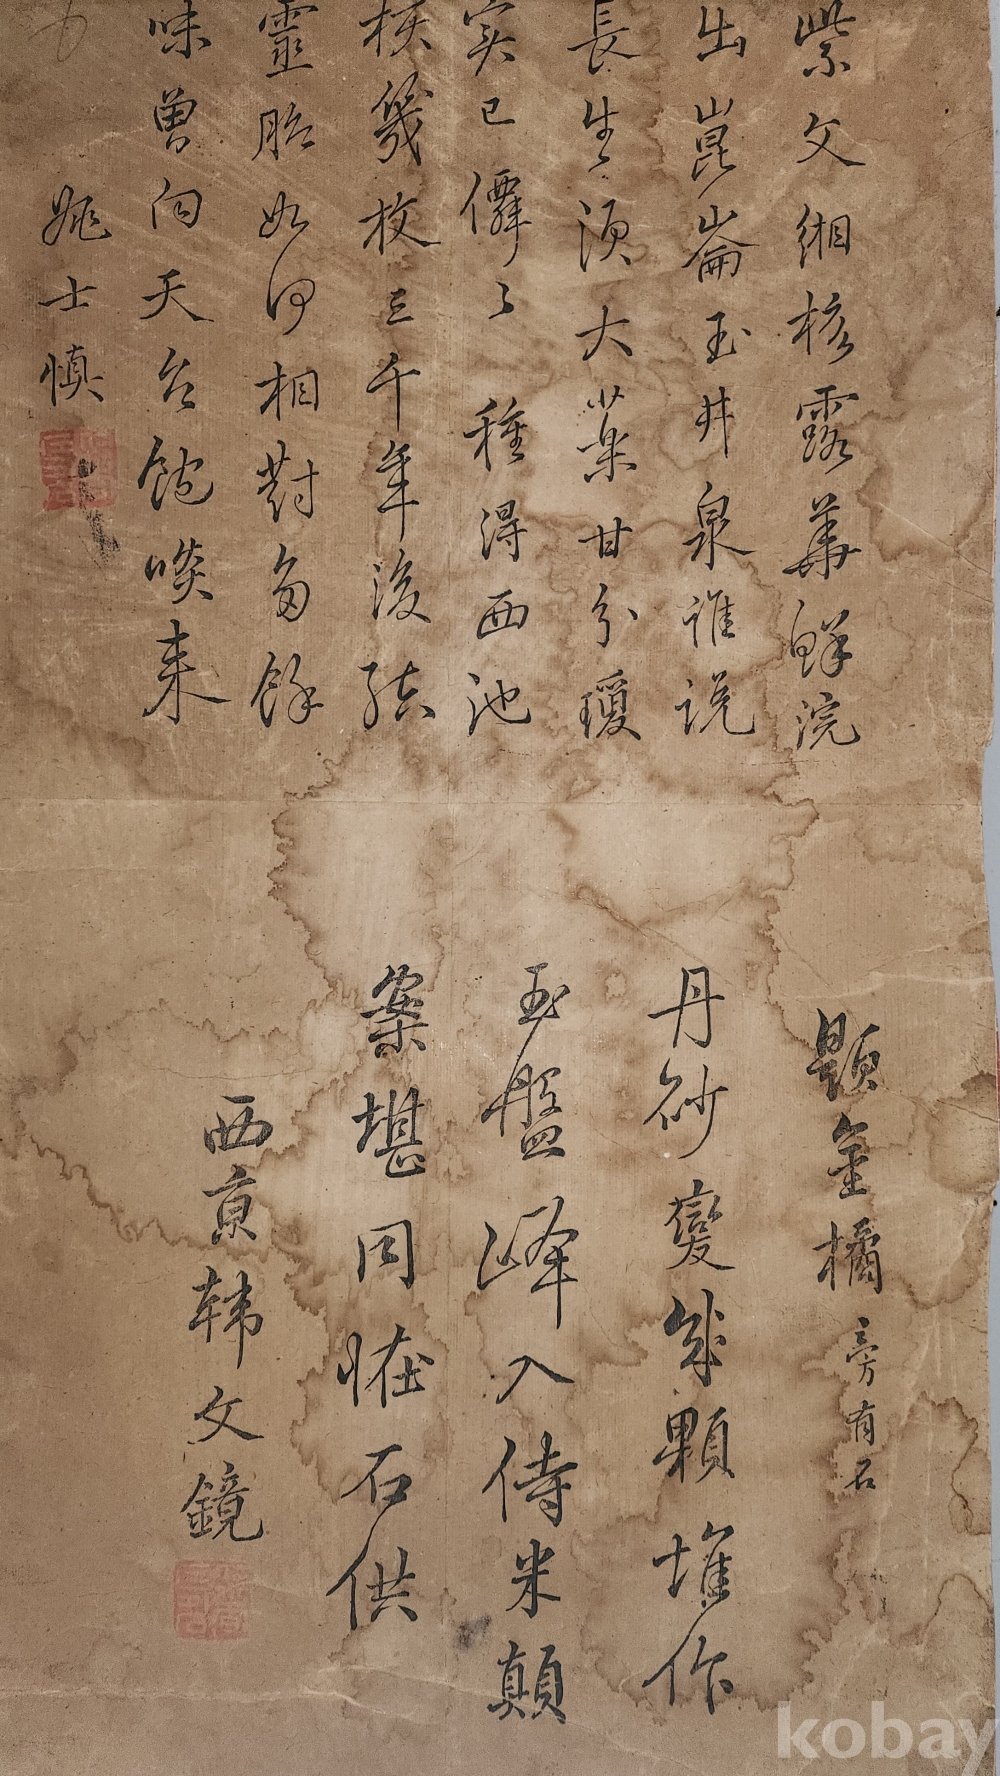 紫文緗核露華鮮浣
出崑崙玉井泉誰說
長生須大藥甘分瓊
實已僊〻種得西池
核幾枚三千年後結
靈胎如何相對多餘
味曾向天台飽啖来
姚士慎
題金橘旁有石
丹砂變幾顆堆作
玉盤峰入侍米顛
案堪同怪石供
西京韩文鏡
kobay